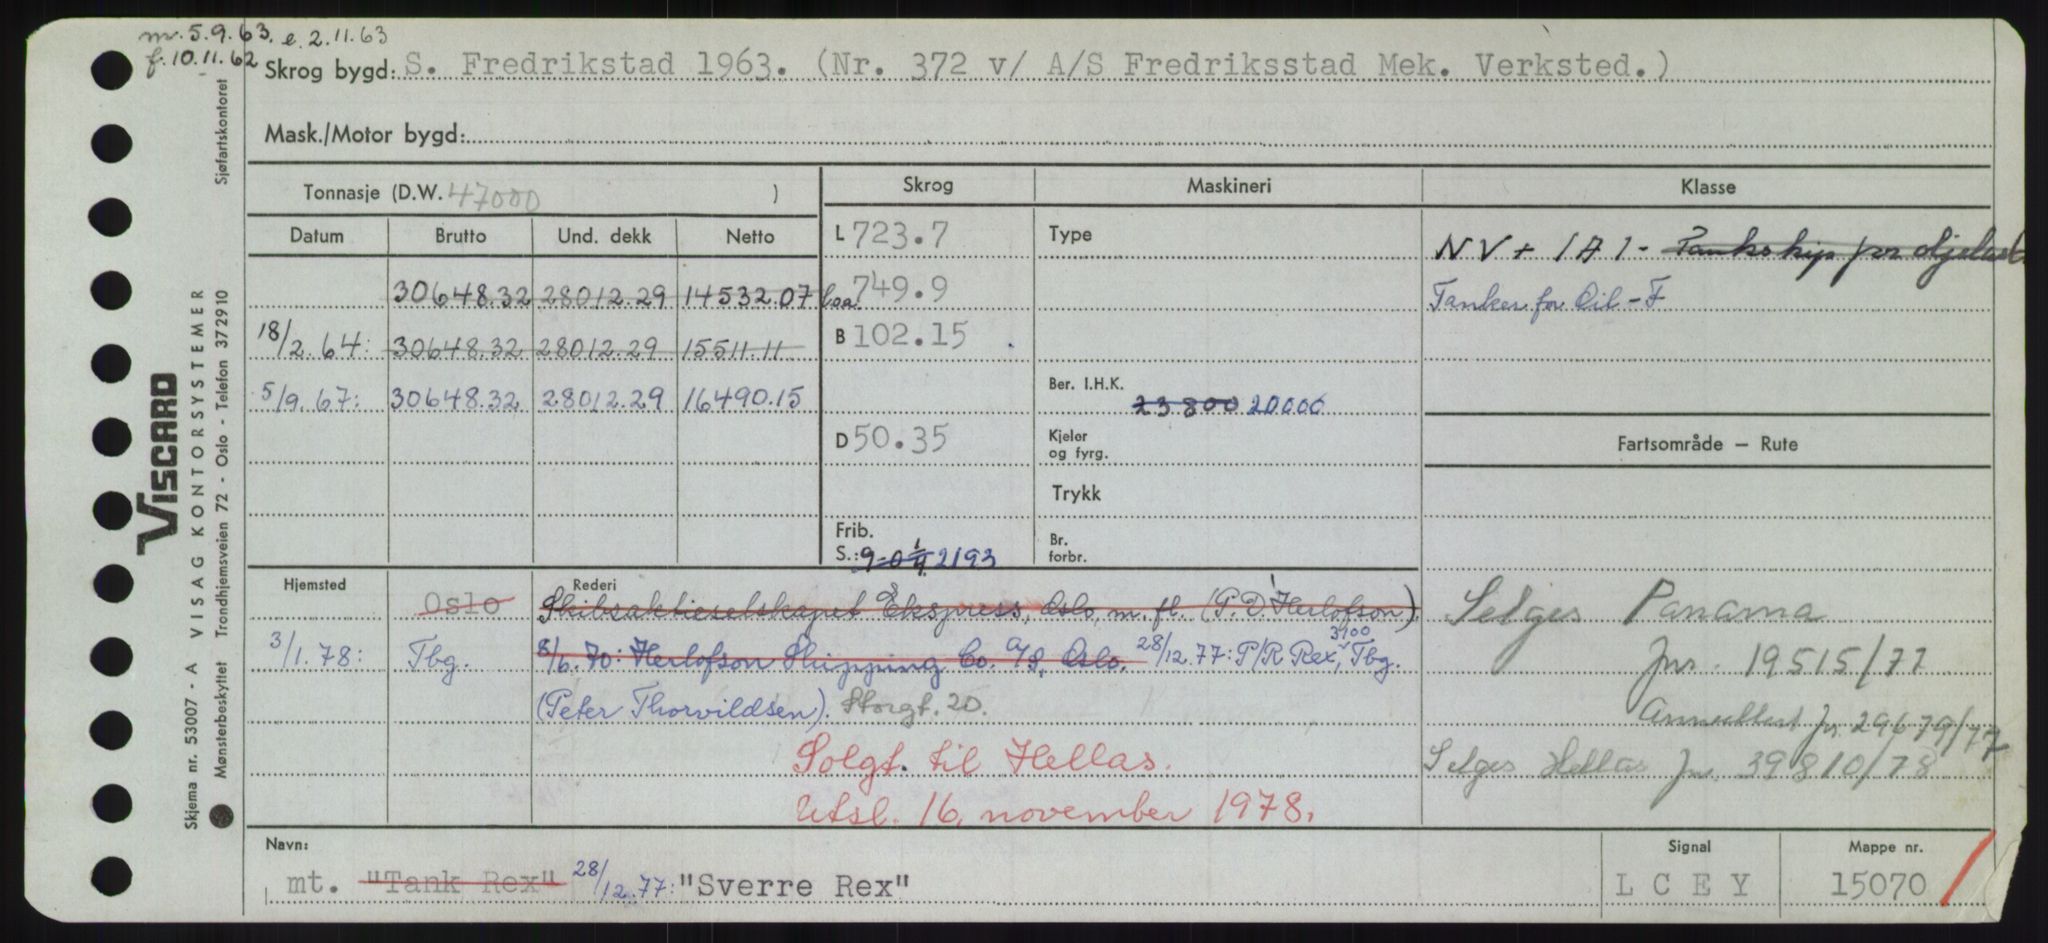 m. 5.9.63. e. 2.11.63
f. 10.11.62
Skrog bygd: S. Fredrikstad 1963. (Nr. 372 v/ A/S Fredriksstad Mek. Verksted.)
Mask./Motor bygd:
Tonnasje (D.W. 47000 )
Skrog
Maskineri
Klasse
Datum Brutto Und. dekk Netto
30648.32 28012.29 14532.07
18/2.64: 30648.32 28012.29 15511.11
5/9.67: 30648.32 28012.29 16490.15
L 723.7
loa. 749.9
B 102.15
D 50.35
Frib.
S.: 9-0 1/4 2193
Type
Ber. I.H.K.
23800 20000
Kjeler
og fyrg.
Trykk
Br.
forbr.
NV + 1A1 - Tankskip for oljelast
Tanker for Oil - F
Fartsområde — Rute
Hjemsted
Rederi
Oslo Skibsaktieselskapet Ekspress, Oslo, m. fl. (P. D. Herlofson).
3/1.78: Tbg. 8/6.70: Herlofson Shipping Co. A/S, Oslo. 28/12.77: P/R Rex, 3100 Tbg.
(Peter Thorvildsen). Storgt. 20.
Solgt til Hellas.
Utsl. 16. november 1978.
Selges Panama
Jnr. 19515/77
Annullert Jr. 29679/77
Selges Hellas Jnr. 39810/78
Navn:
mt. "Tank Rex" 28/12.77: "Sverre Rex"
Signal
LCEY
Mappe nr.
15070
VISCARD
Skjema nr. 53007 - A VISAG KONTORSYSTEMER
Mønsterbeskyttet Trondhjemsveien 72 - Oslo - Telefon 372910 Sjøfartskontoret